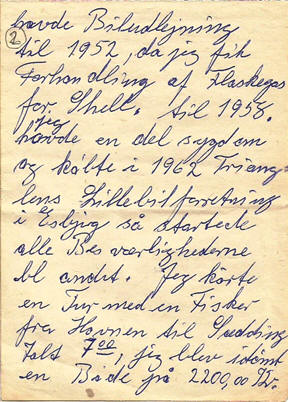 havde Biludlejning
2 til 1952, da jeg fik
Forhandling af Flaskegas
for Shell. til 1958.
jeg
havde en del sygdom
og købte i 1962 Triang
lens Lillebilforretning
i Esbjerg så startede
alle Besværlighederne
bl andt. Jeg kørte
en Tur med en Fisker
fra Havnen til Sædding
Takst 7.00, jeg blev idømt
en Bøde på 2200,00 Kr.